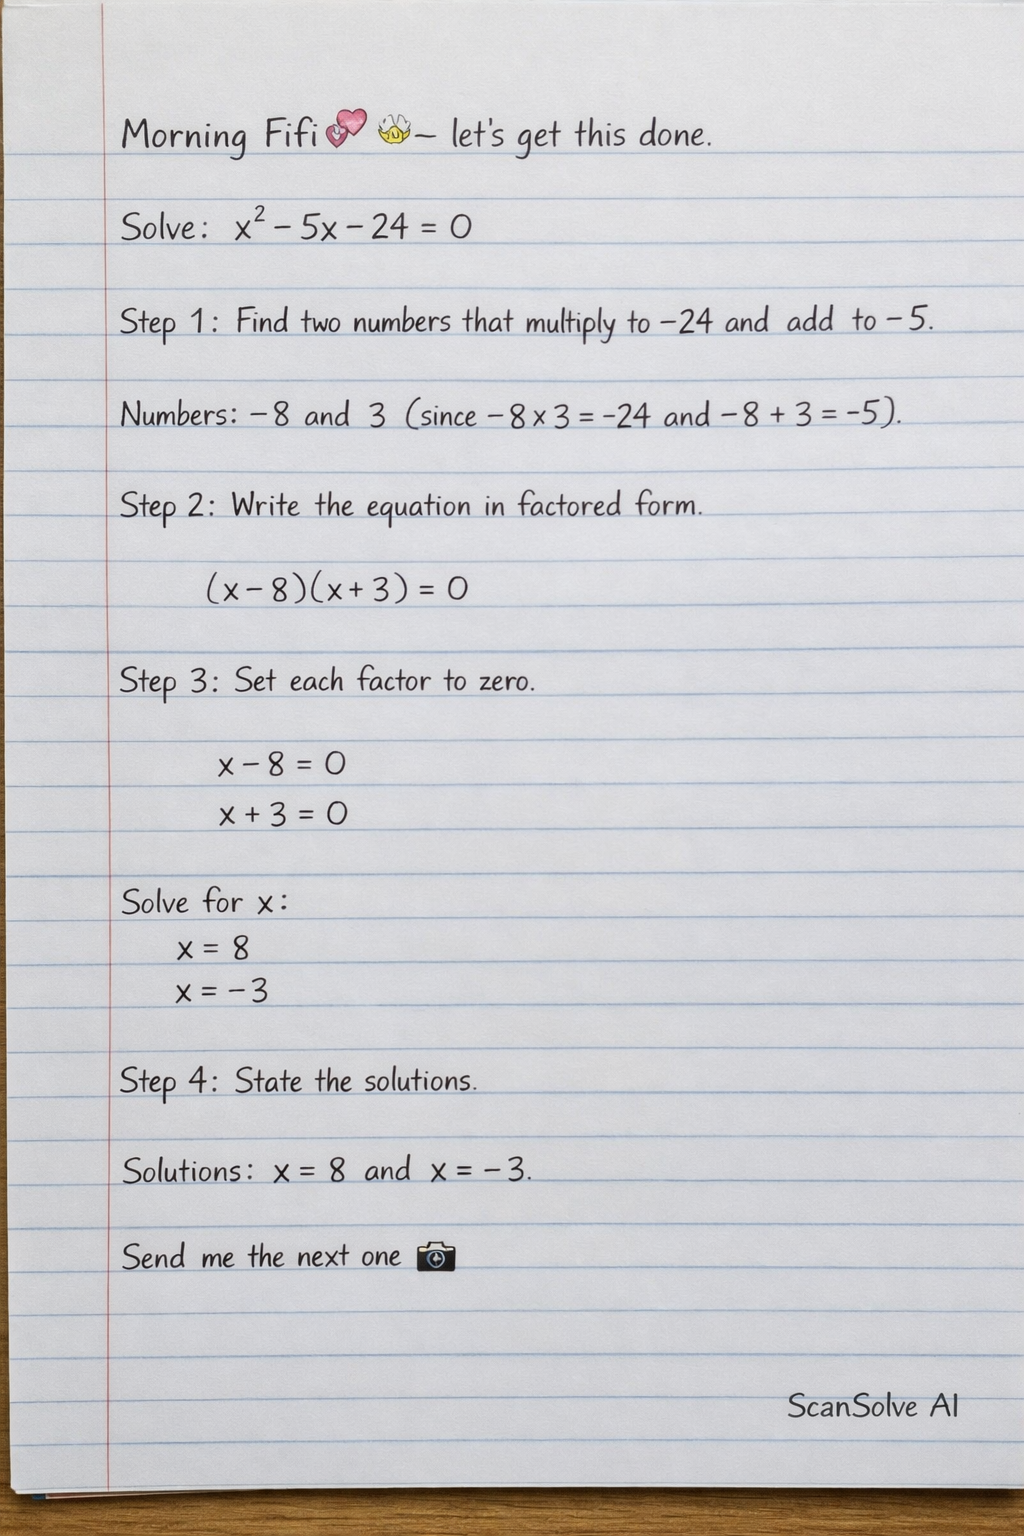 Morning Fifi — let's get this done.
Solve: x² − 5x − 24 = 0
Step 1: Find two numbers that multiply to −24 and add to −5.
Numbers: −8 and 3 (since −8 × 3 = -24 and −8 + 3 = -5).
Step 2: Write the equation in factored form.
(x − 8)(x + 3) = 0
Step 3: Set each factor to zero.
x − 8 = 0
x + 3 = 0
Solve for x:
x = 8
x = −3
Step 4: State the solutions.
Solutions: x = 8 and x = −3.
Send me the next one
ScanSolve AI